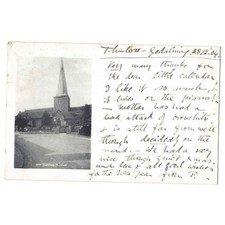 Godalming 28.12.04
Very many thanks for
the dear little calendar
I like it so much, &
it lives on the piano! –
mother has had a
bad attack of bronchitis
& is still far from well
though decidedly on the
mend. – We had a very
nice though quiet Xmas.
much love & all good wishes
for the new year from P.